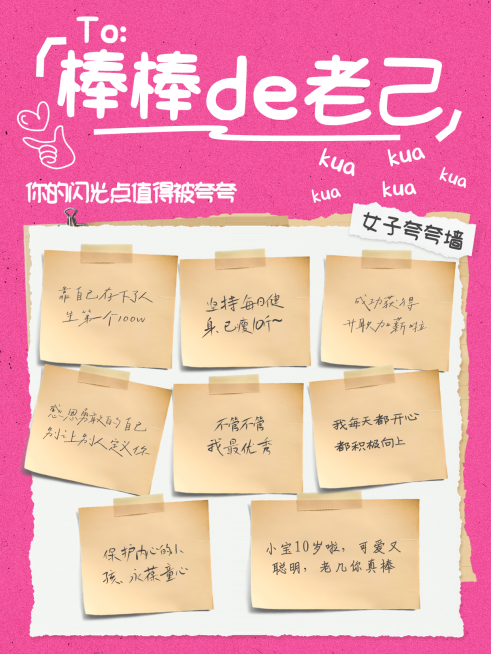 To:
「棒棒de老己」
kua
kua
kua
kua
kua
你的闪光点值得被夸夸
女子夸夸墙
靠自己存下了人
生第一个100w
坚持每日健
身,已瘦10斤~
成功获得
升职加薪啦
感恩勇敢的自己
别让别人定义你
不管不管
我最优秀
我每天都开心
都积极向上
保护内心的小
孩,永葆童心
小宝10岁啦,可爱又
聪明,老几你真棒